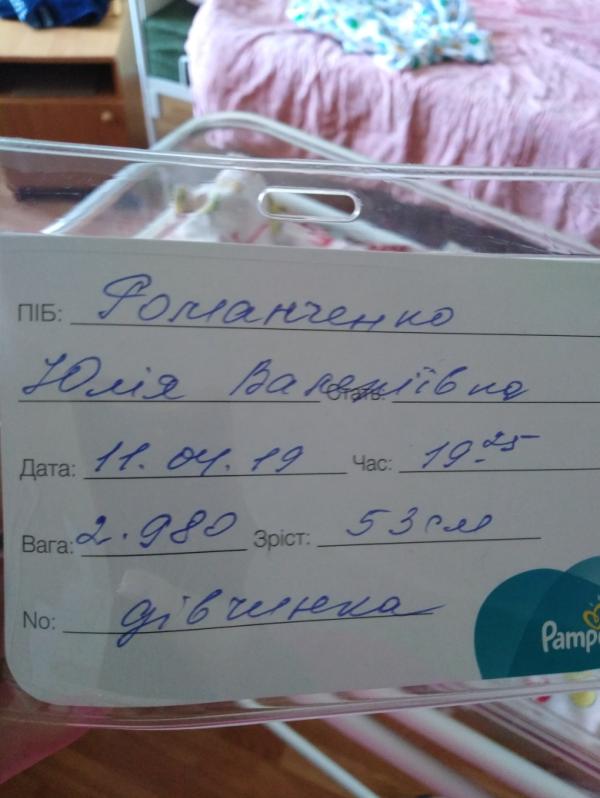 ПІБ: Романченко
Юлія Валеріївна Стать:
Дата: 11.04.19 Час: 19-25
Вага: 2.980 Зріст: 53см
No: дівчинка
Pampe